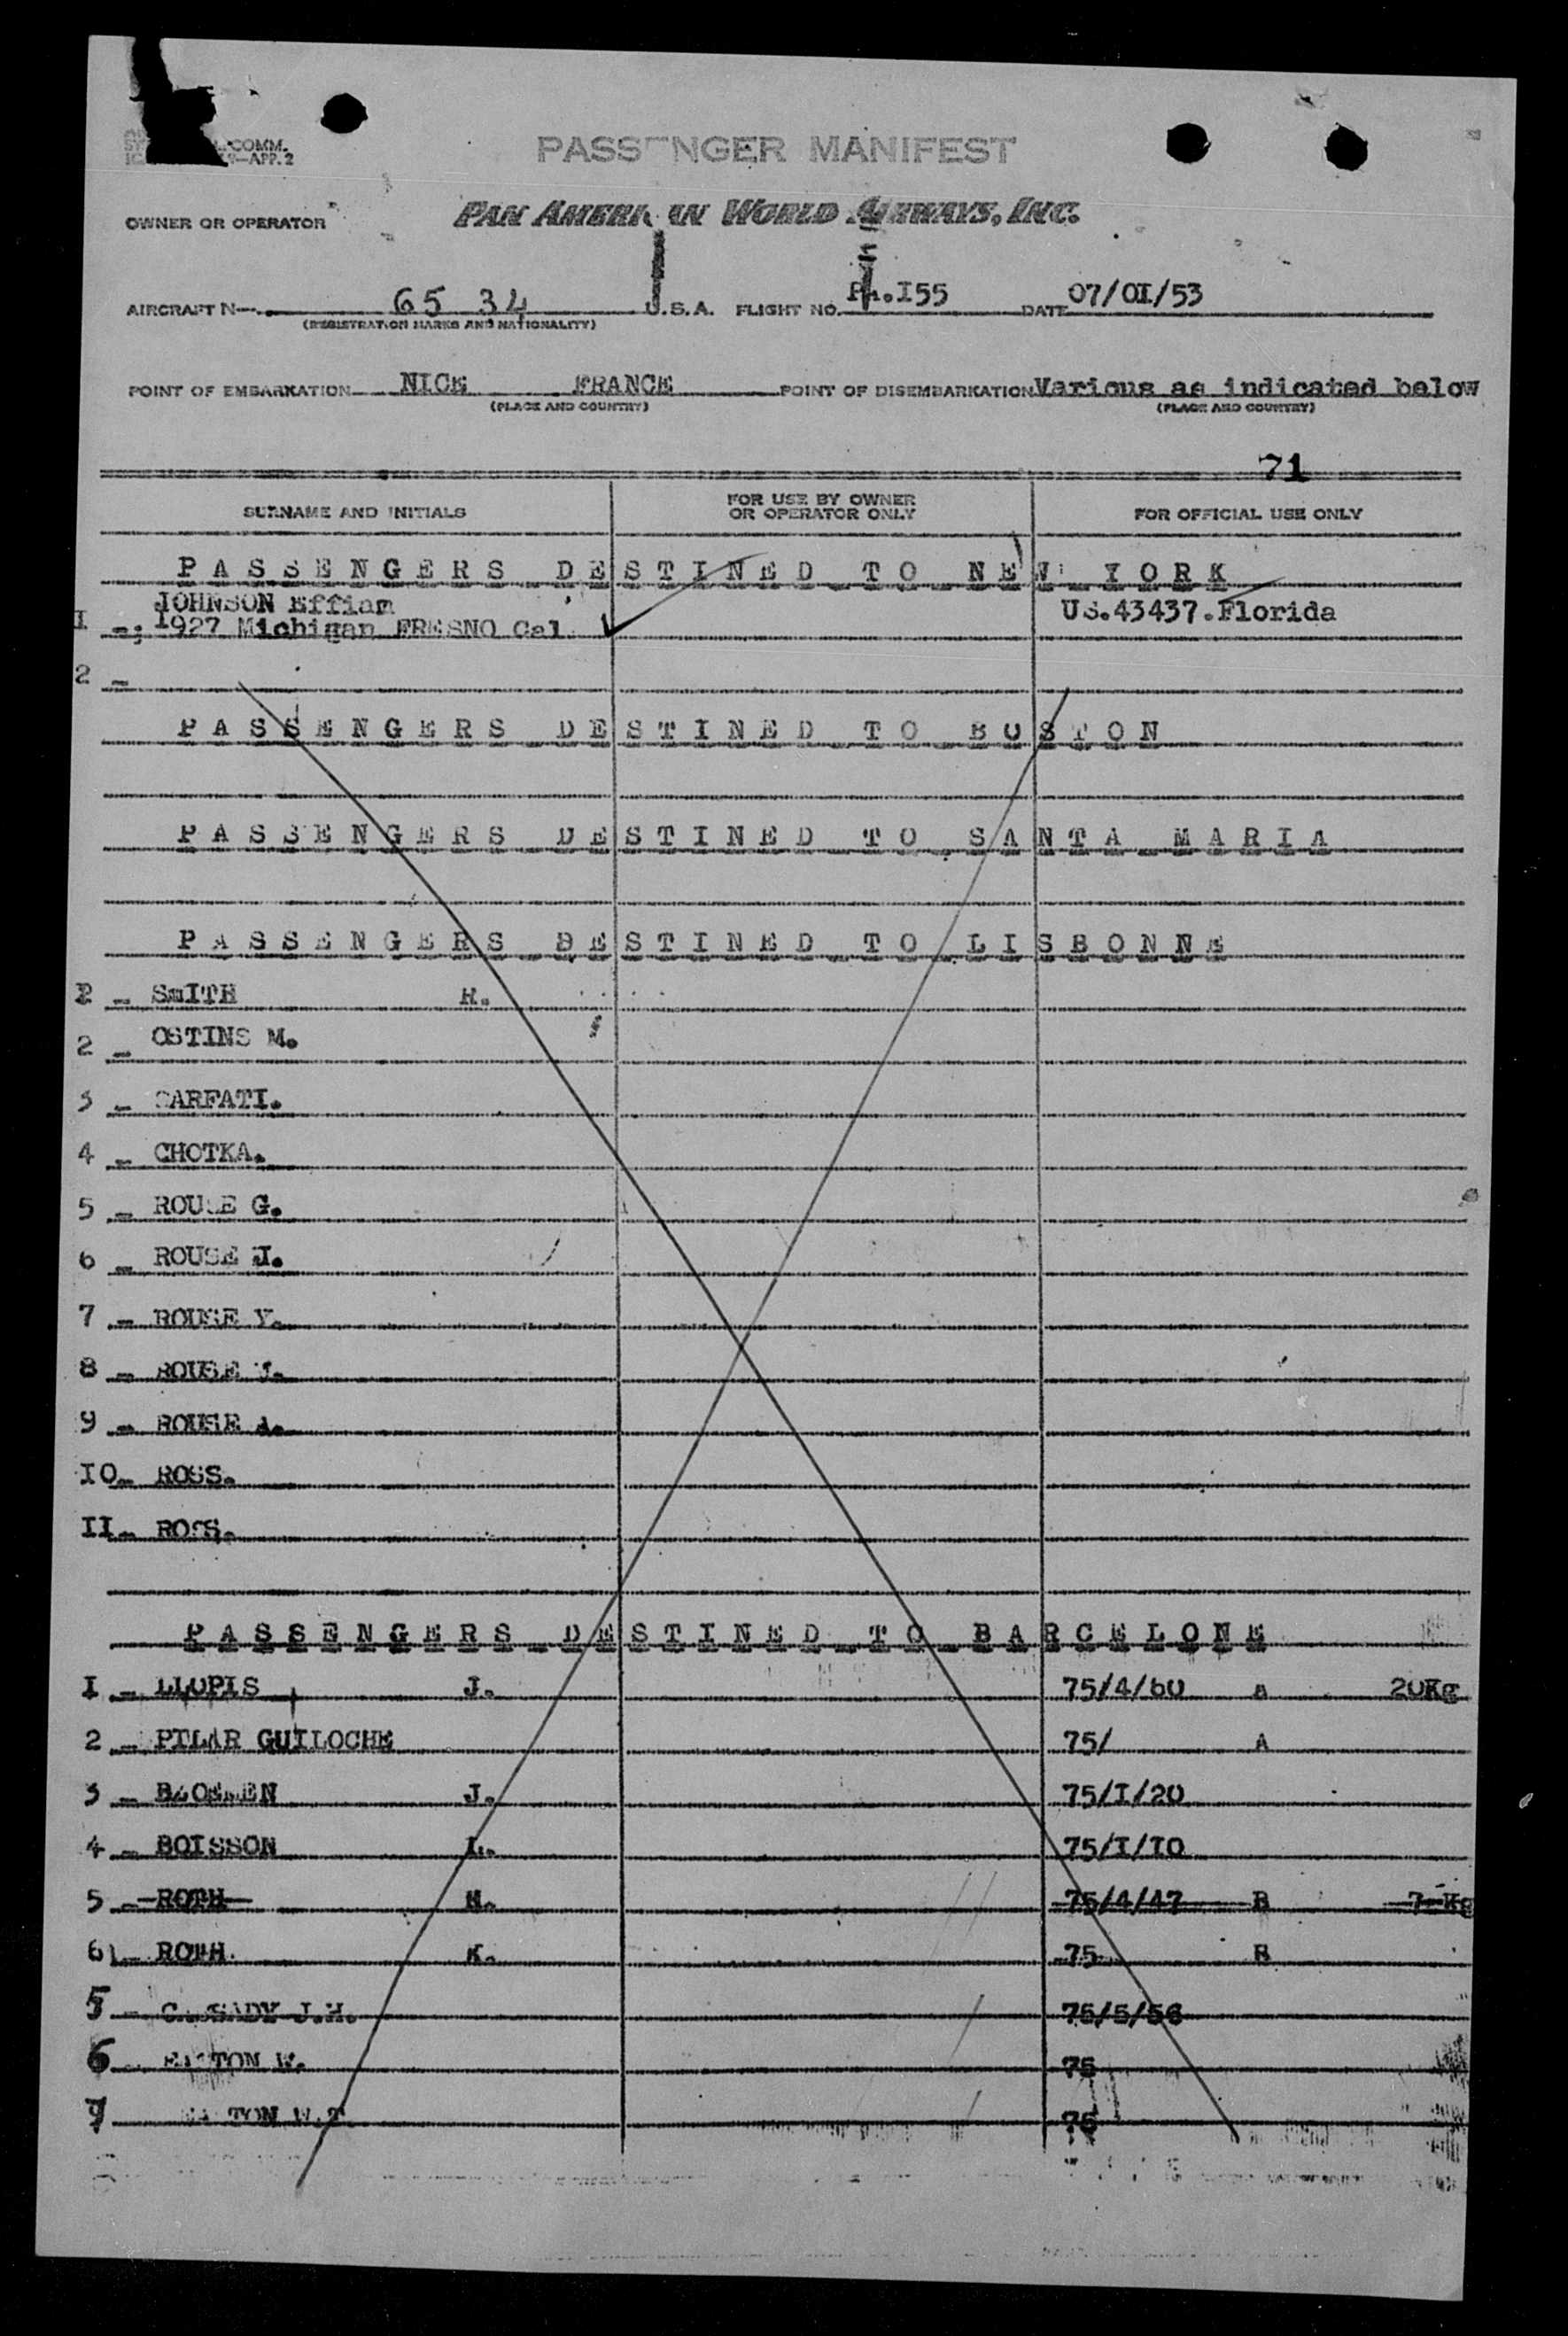 COMM.
APP. 2
PASSENGER MANIFEST
OWNER OR OPERATOR PAN AMERICAN WORLD AIRWAYS, INC.
AIRCRAFT 65 34 U.S.A. FLIGHT NO. PA.I55 DATE 07/0I/53
(REGISTRATION MARKS AND NATIONALITY)
POINT OF EMBARKATION NICE FRANCE POINT OF DISEMBARKATION Various as indicated below
(PLACE AND COUNTRY) (PLACE AND COUNTRY)
71
SURNAME AND INITIALS FOR USE BY OWNER OR OPERATOR ONLY FOR OFFICIAL USE ONLY
PASSENGERS DESTINED TO NEW YORK
JOHNSON Effiam US.43437.Florida
I -; 1927 Michigan FRESNO Cal
2 -
PASSENGERS DESTINED TO BOSTON
PASSENGERS DESTINED TO SANTA MARIA
PASSENGERS DESTINED TO LISBONNE
- SmITH H.
2 - OSTINS M.
3 - SARFATI.
4 - CHOTKA.
5 - ROUSE G.
6 - ROUSE J.
7 - ROUSE Y.
8 - ROUSE
9 - ROUSE A.
IO- ROSS.
II- ROSS.
PASSENGERS DESTINED TO BARCELONE
I - LLOPIS J. 75/4/60 A 20Kg
2 - PILAR GUILOCHE 75/ A
3 - J. 75/I/20
4 - BOISSON L. 75/I/IO
5 - ROTH M. 75/4/47 B Kg
6 - ROTH K. 75 B
5 - J.H. 75/5/56
6 - W. 75
75